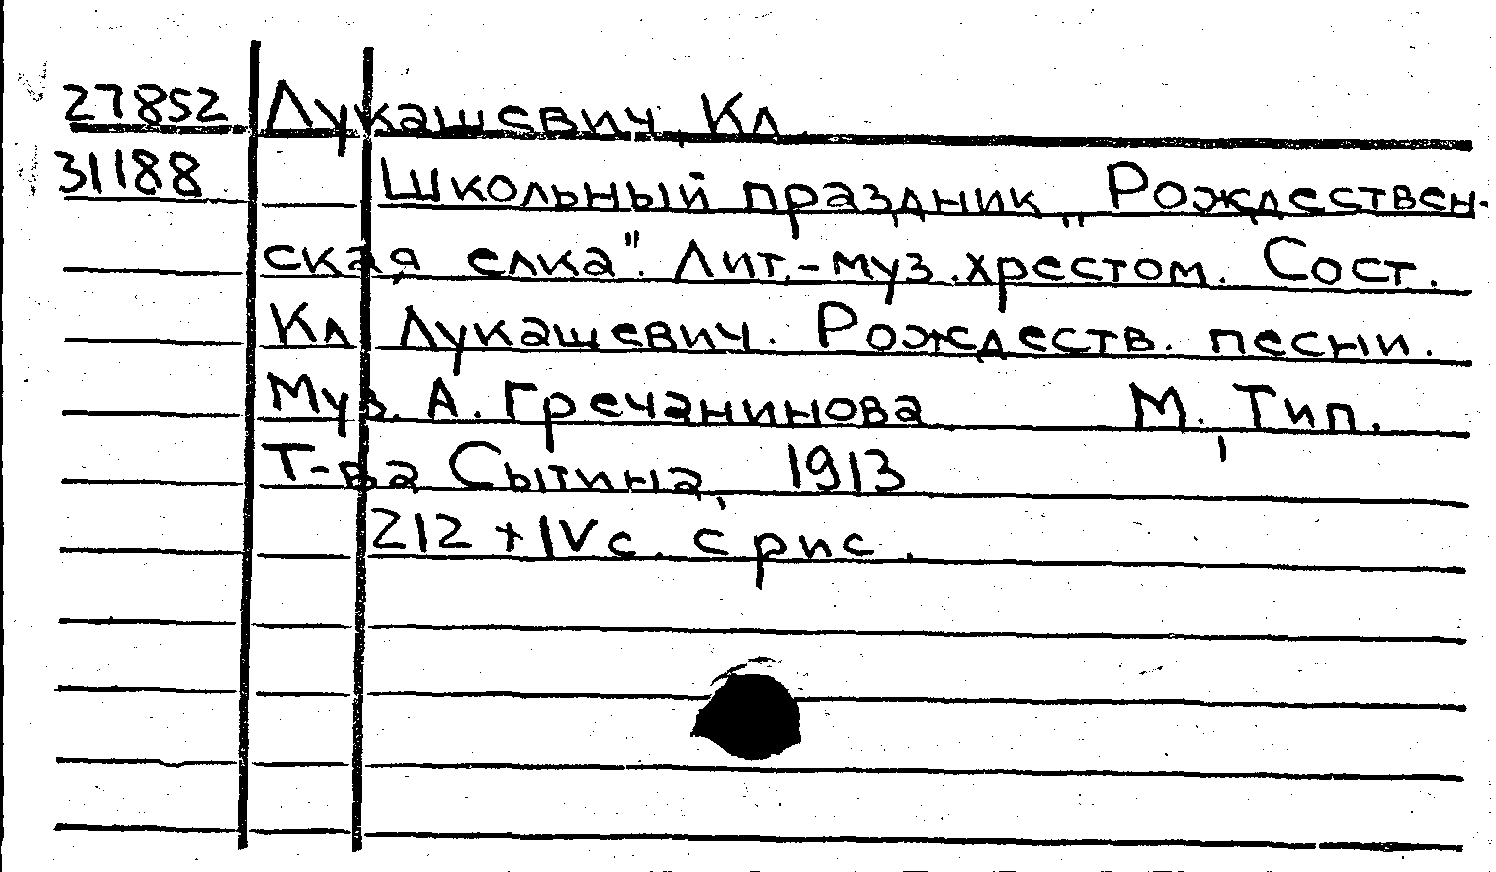 27852 Лукашевич Кл
31188 Школьный праздник „Рождествен-
ская елка". Лит.-муз.хрестом. Сост.
Кл Лукашевич. Рождеств. песни.
Муз. А. Гречанинова М., Тип.
Т-ва Сытина, 1913
212 + IV с. с рис.